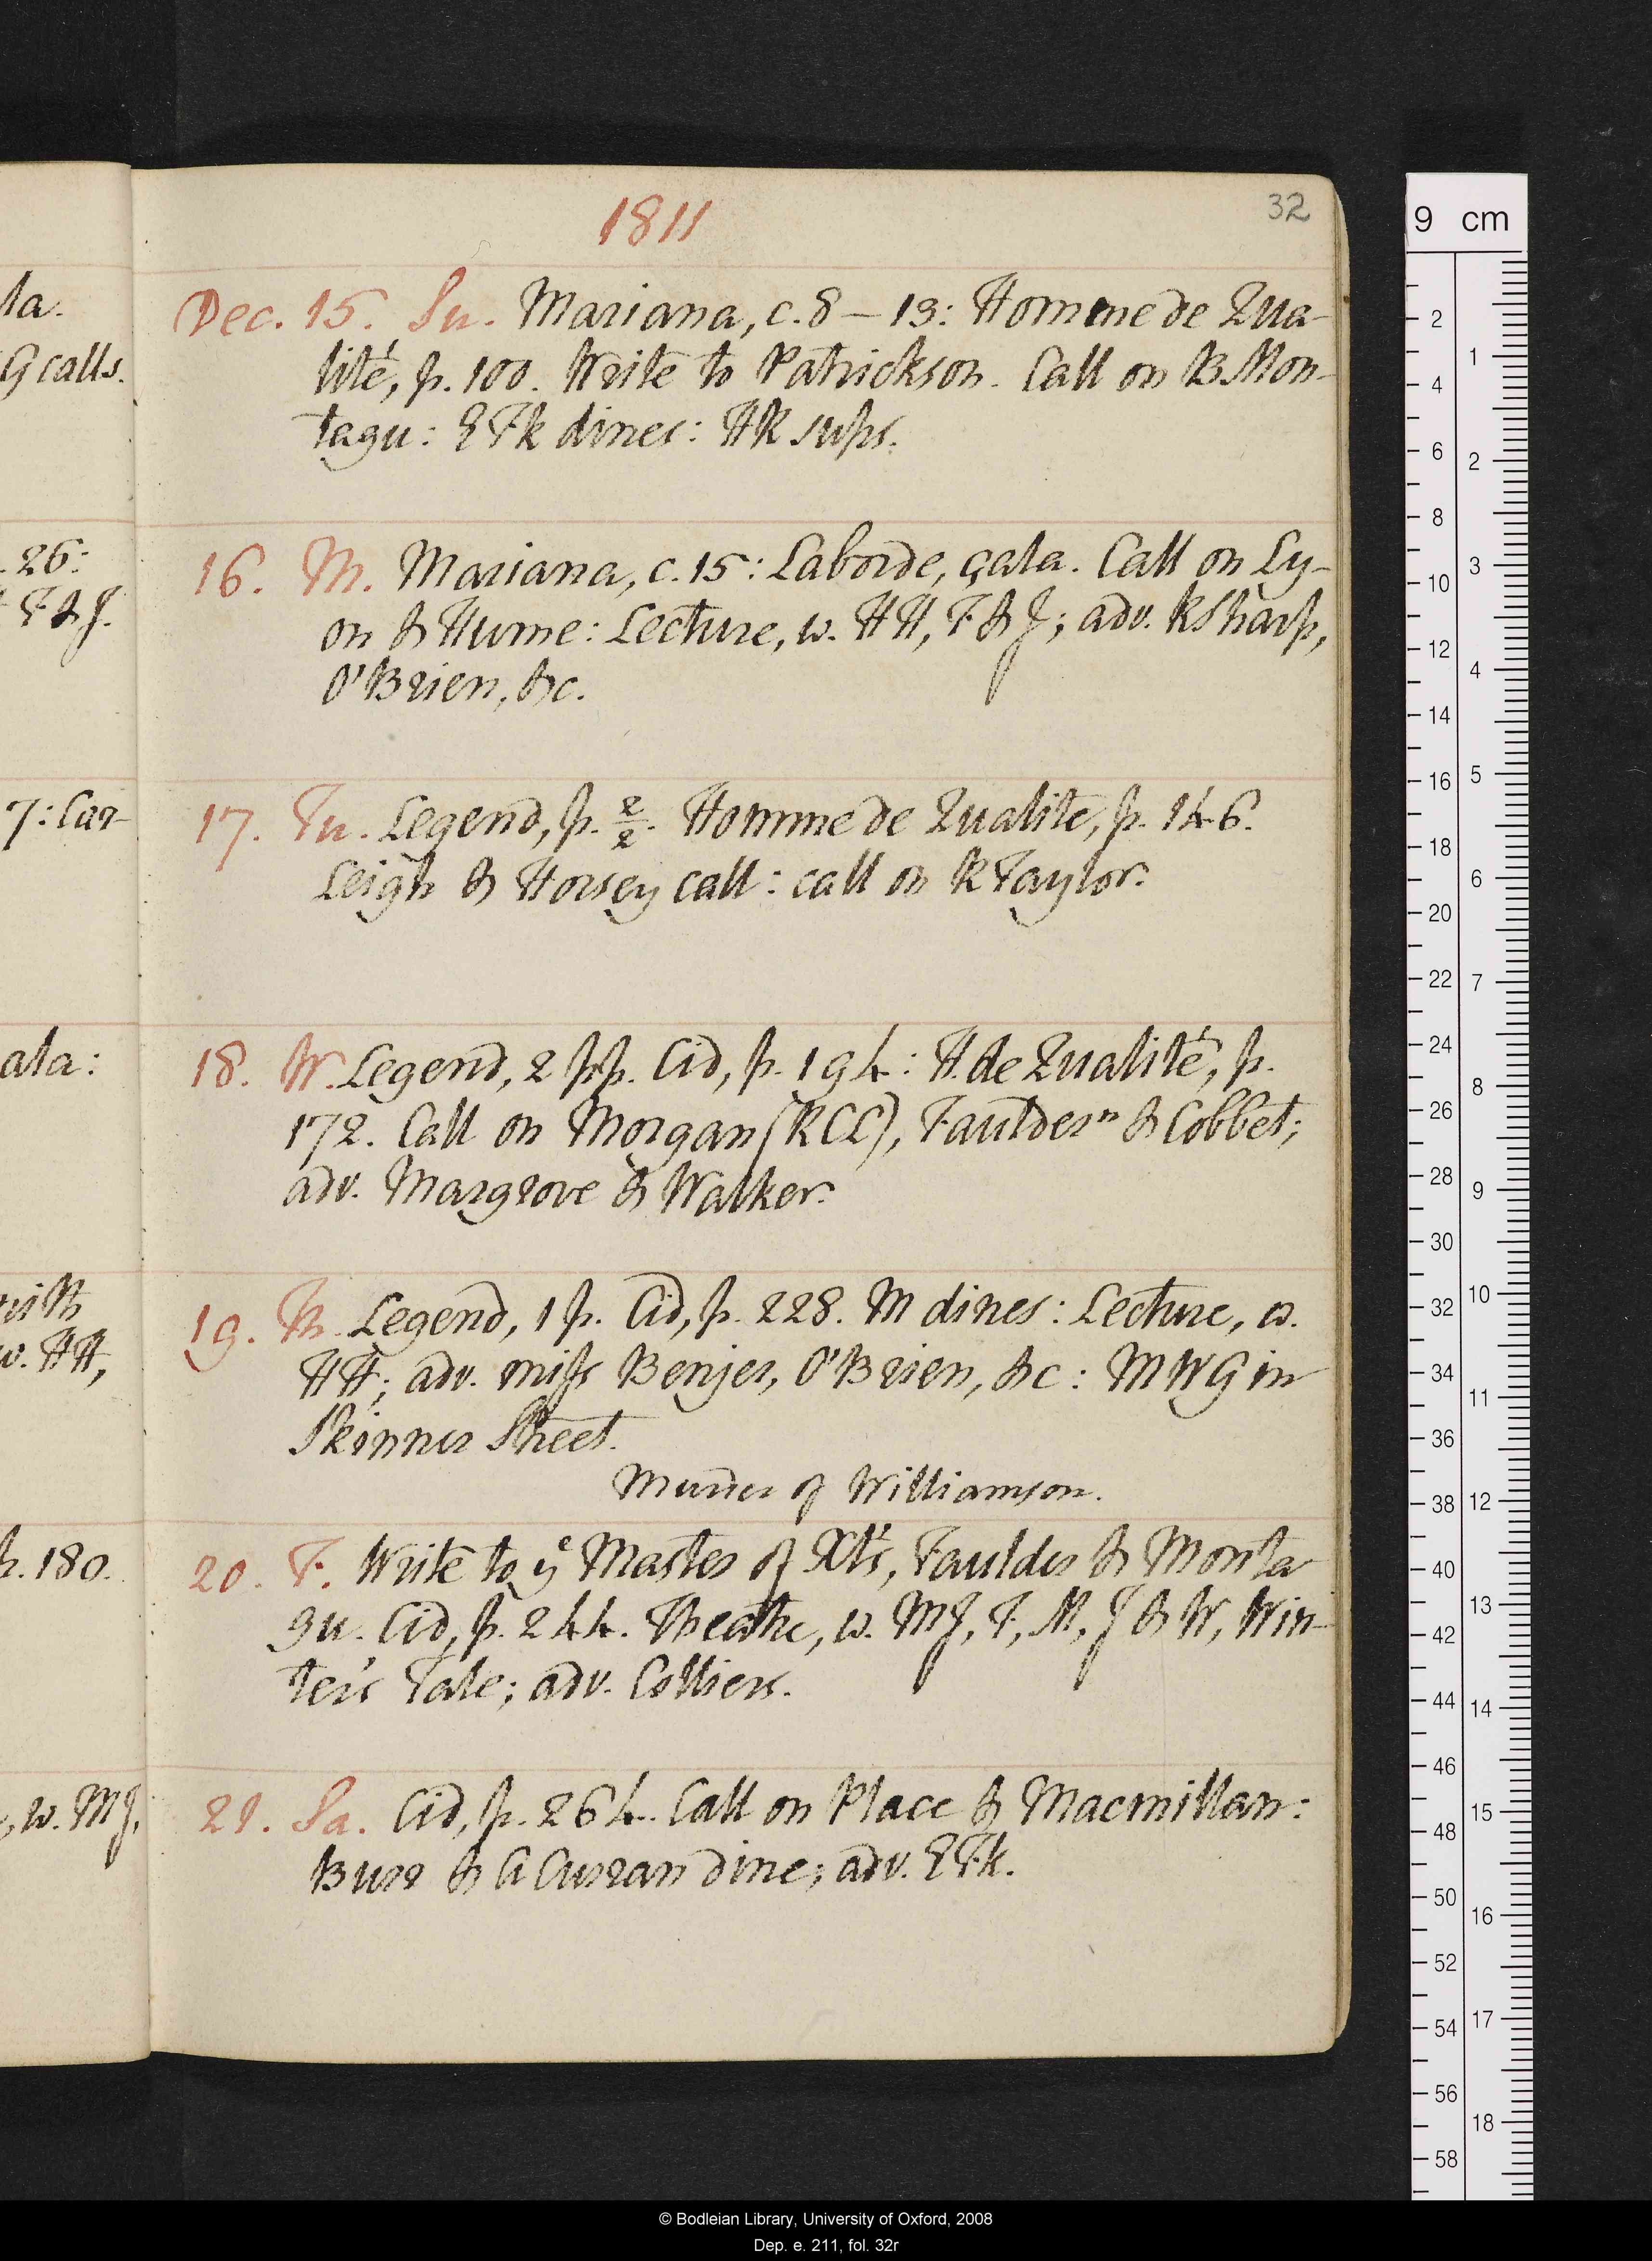 1811
32
Dec. 15. Su. Mariana, c. 8 – 13: Homme de Qua-
lité, p. 100. Write to Patrickson. Call on B Mon-
tagu: E Fk dines: HR sups.
16. M. Mariana, c. 15: Laborde, çala. Call on Ly-
on & Hume: Lecture, w. HH, F & J; adv. R Sharp,
O'Brien, &c.
17. Tu. Legend, p. 2/2. Homme de Qualité, p. 146.
Leigh & Horsey call: call on R Taylor.
18. W. Legend, 2 pp. Cid, p. 194: H. de Qualité, p.
172. Call on Morgan (RCC), Faulder n & Cobbet;
adv. Margrove & Walker.
19. Th. Legend, 1 p. Cid, p. 228. M dines: Lecture, w.
HH; adv. miss Benjer, O'Brien, &c: MWG in
Skinner Street.
Murder of Williamson.
20. F. Write to ye Master of Xt's, Faulder & Monta
gu. Cid, p. 244. Theatre, w. MJ, F, M, J & W, Win-
ter's Tale; adv. Colliers.
21. Sa. Cid, p. 264. Call on Place & Macmillan:
Burr & A Curran dine; adv. E Fk.
la.
G calls.
26:
F & J.
7: Car-
ala:
with
w. HH,
p. 180.
, w. MJ,
9 cm
2
4
6
8
10
12
14
16
18
20
22
24
26
28
30
32
34
36
38
40
42
44
46
48
50
52
54
56
58
1
2
3
4
5
6
7
8
9
10
11
12
13
14
15
16
17
18
© Bodleian Library, University of Oxford, 2008
Dep. e. 211, fol. 32r